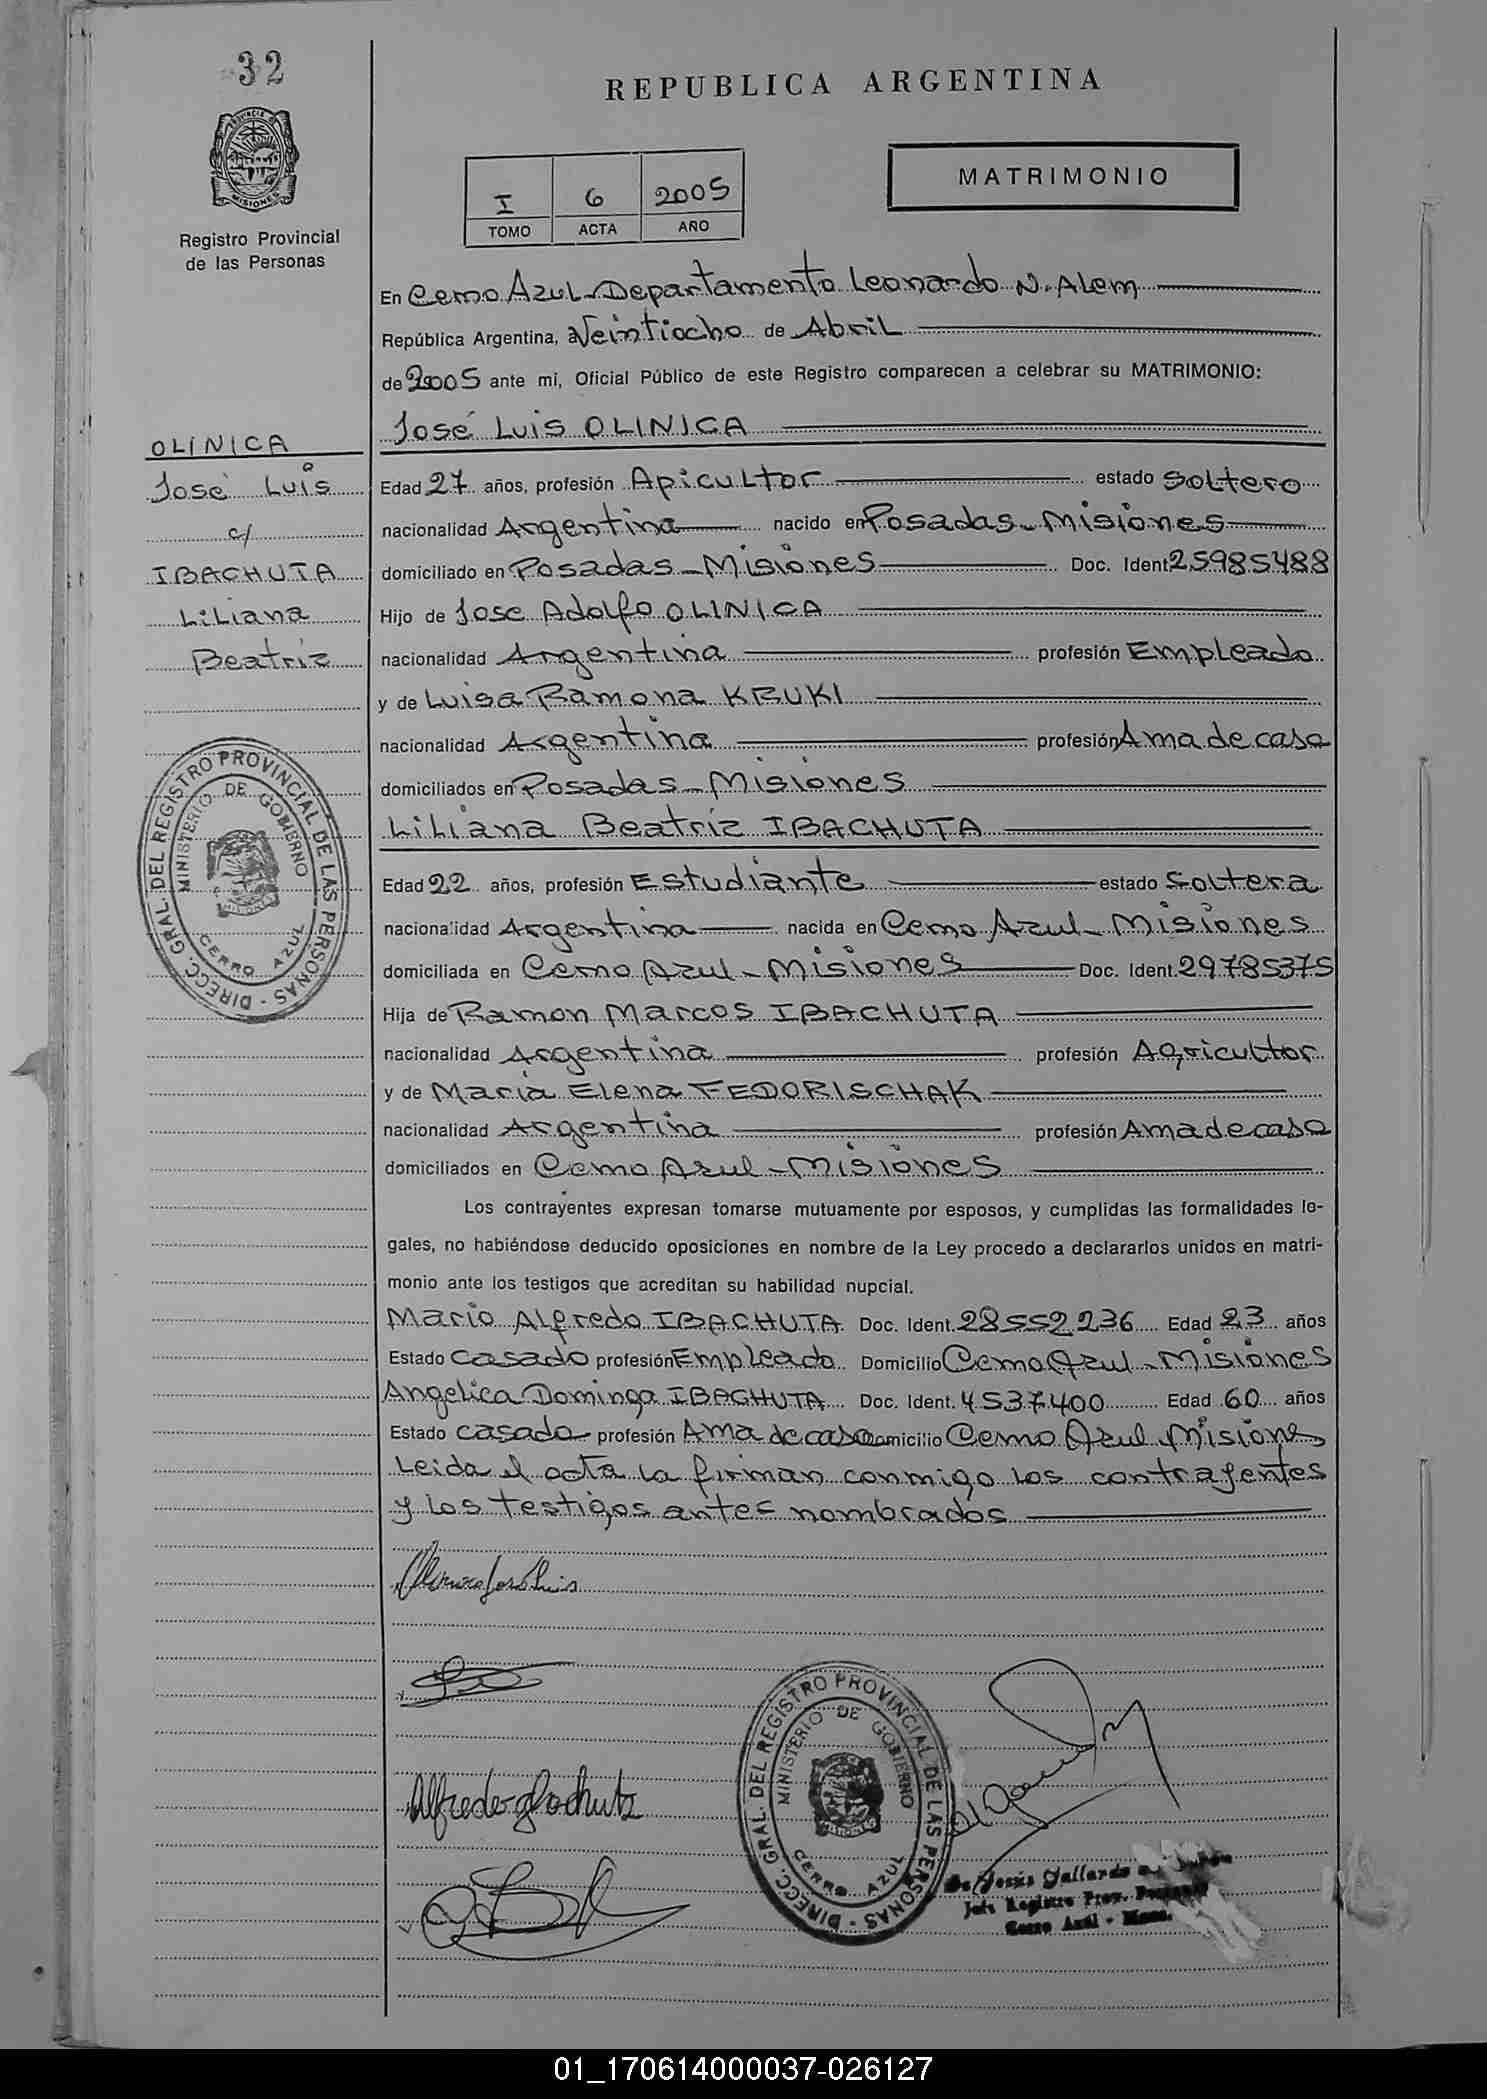 32
REPUBLICA ARGENTINA
PROVINCIA DE
MISIONES
Registro Provincial
de las Personas
I 6 2005
TOMO ACTA AÑO
MATRIMONIO
En Cerro Azul-Departamento Leonardo N. Alem
República Argentina, a Veintiocho de Abril
de 2005 ante mí, Oficial Público de este Registro comparecen a celebrar su MATRIMONIO:
José Luis OLINICA
Edad 27 años, profesión Apicultor estado Soltero
nacionalidad Argentina nacido en Posadas-Misiones
domiciliado en Posadas-Misiones Doc. Ident. 25985488
Hijo de Jose Adolfo OLINICA
nacionalidad Argentina profesión Empleado
y de Luisa Ramona KRUKI
nacionalidad Argentina profesión Ama de casa
domiciliados en Posadas-Misiones
Liliana Beatriz IBACHUTA
Edad 22 años, profesión Estudiante estado Soltera
nacionalidad Argentina nacida en Cerro Azul-Misiones
domiciliada en Cerro Azul-Misiones Doc. Ident. 29785375
Hija de Ramon Marcos IBACHUTA
nacionalidad Argentina profesión Agricultor
y de Maria Elena FEDORISCHAK
nacionalidad Argentina profesión Ama de casa
domiciliados en Cerro Azul-Misiones
Los contrayentes expresan tomarse mutuamente por esposos, y cumplidas las formalidades le-
gales, no habiéndose deducido oposiciones en nombre de la Ley procedo a declararlos unidos en matri-
monio ante los testigos que acreditan su habilidad nupcial.
Mario Alfredo IBACHUTA Doc. Ident. 28552236 Edad 23 años
Estado Casado profesión Empleado Domicilio Cerro Azul-Misiones
Angelica Dominga IBACHUTA Doc. Ident. 4537400 Edad 60 años
Estado casada profesión Ama de casa Domicilio Cerro Azul Misiones
Leida el acta la firman conmigo los contrayentes
y los testigos antes nombrados
OLINICA
José Luis
c/
IBACHUTA
Liliana
Beatriz
DIRECC. GRAL. DEL REGISTRO PROVINCIAL DE LAS PERSONAS
MINISTERIO DE GOBIERNO
CERRO AZUL
Olinica José Luis
Alfredo Ibachuta
DIRECC. GRAL. DEL REGISTRO PROVINCIAL DE LAS PERSONAS
MINISTERIO DE GOBIERNO
MISIONES
CERRO AZUL
Jesús Gallardo
Jefe Registro Prov. Personas
Cerro Azul - Mnes.
01_170614000037-026127